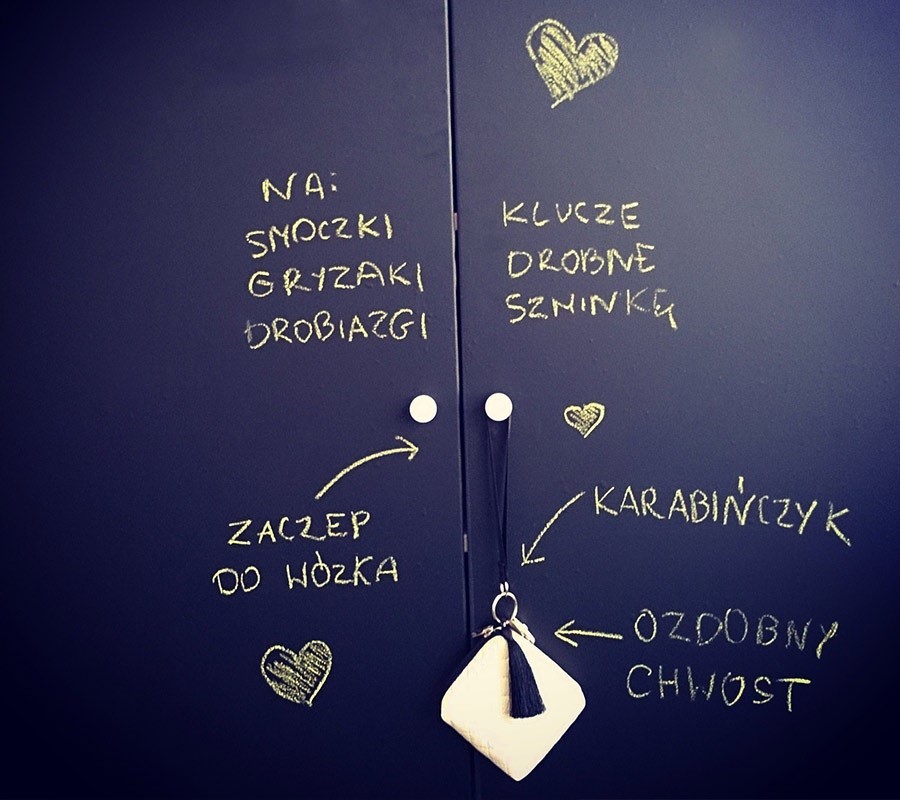 NA:
SMOCZKI
GRYZAKI
DROBIAZGI
KLUCZE
DROBNE
SZMINKĘ
ZACZEP
DO WÓZKA
KARABIŃCZYK
OZDOBNY
CHWOST